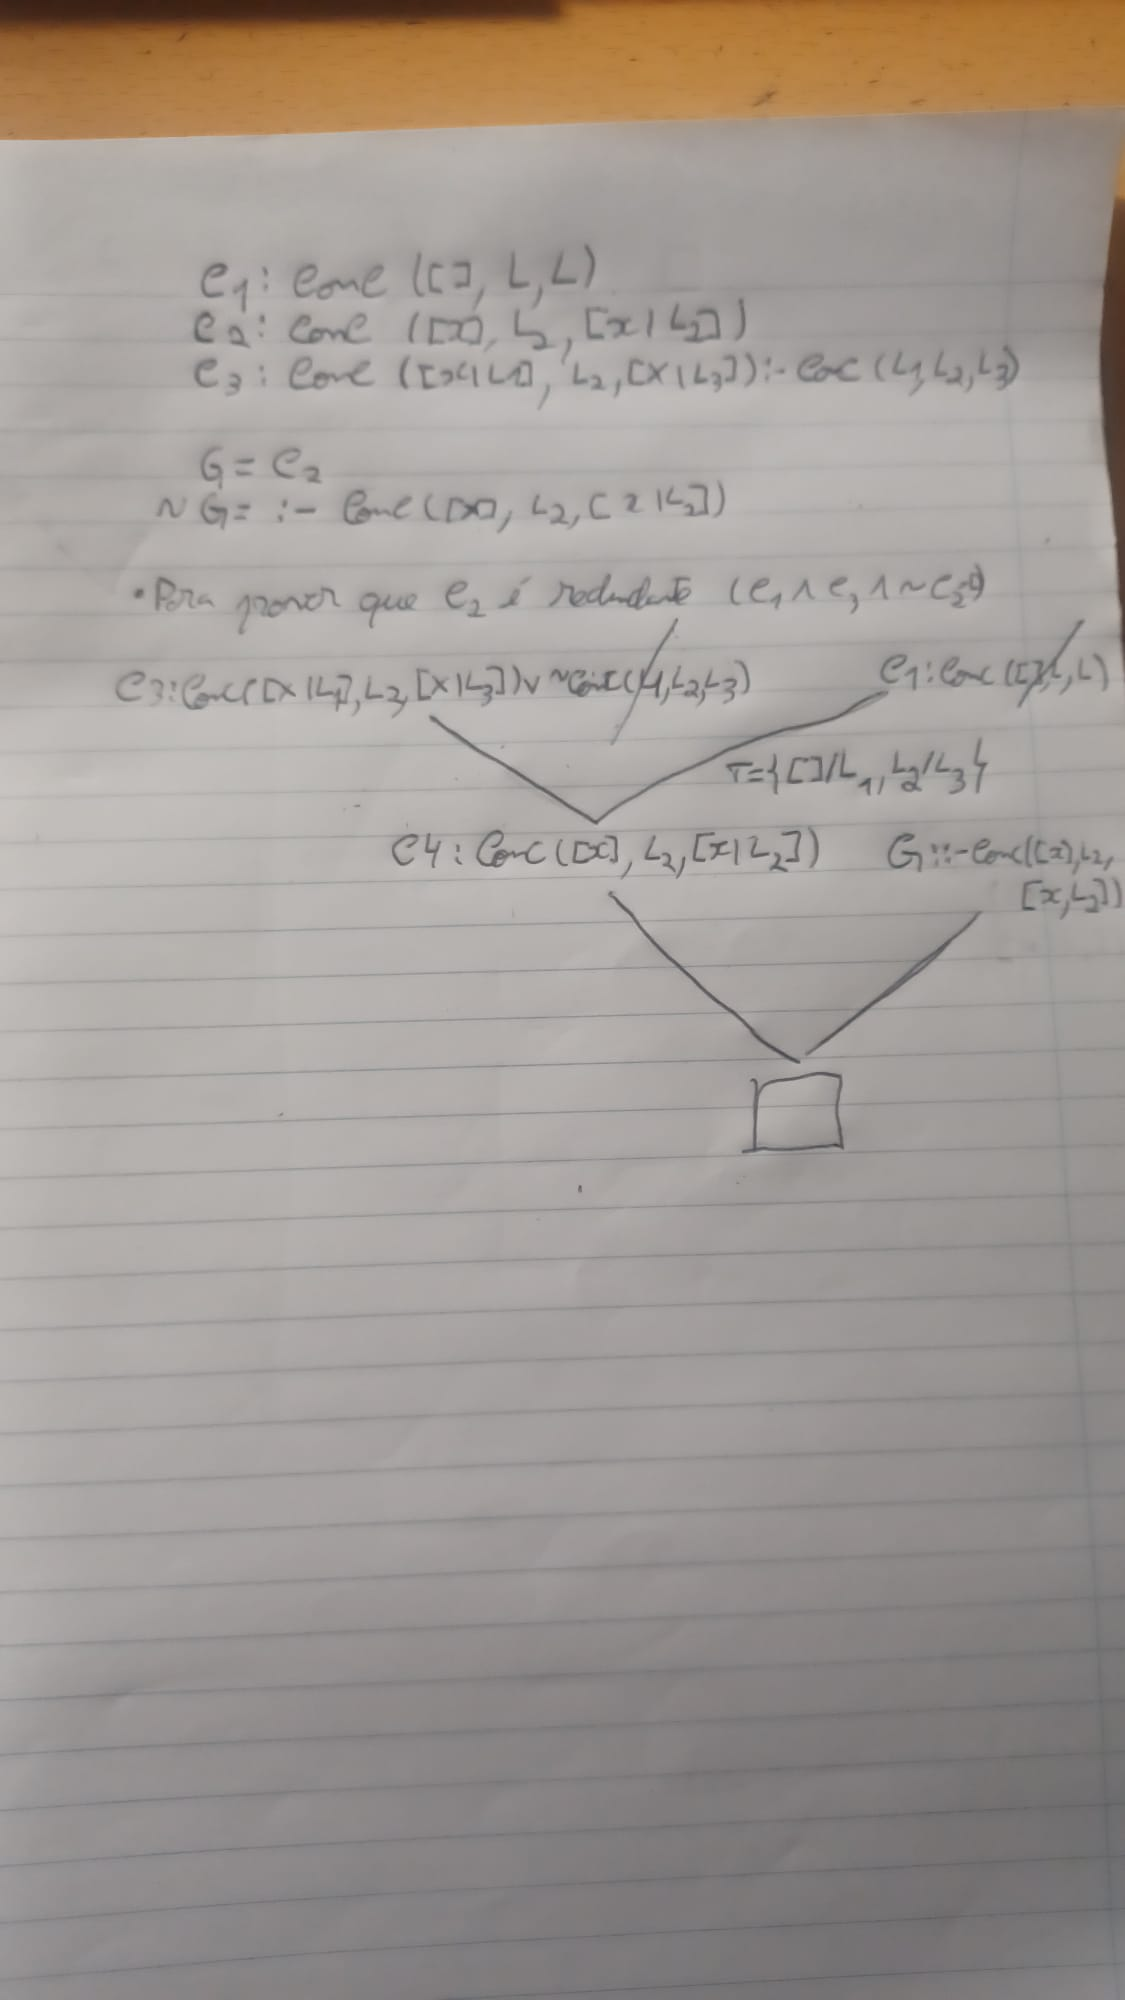 C1: Conc ([], L, L)
C2: Conc ([x], L2, [x|L2])
C3: Conc ([x|L1], L2, [x|L3]):- Coc (L1, L2, L3)
G = C2
~G = :- Conc([x], L2, [x|L2])
• Para provar que C2 é redundante (C1 ∧ C3 ∧ ~C2)
C3: Conc([x|L1], L2, [x|L3]) ∨ ~Conc(L1, L2, L3) C1: Conc ([], L, L)
T={[]/L1, L2/L3}
C4: Conc ([x], L2, [x|L2]) G::-Conc([x], L2,
[x, L2])